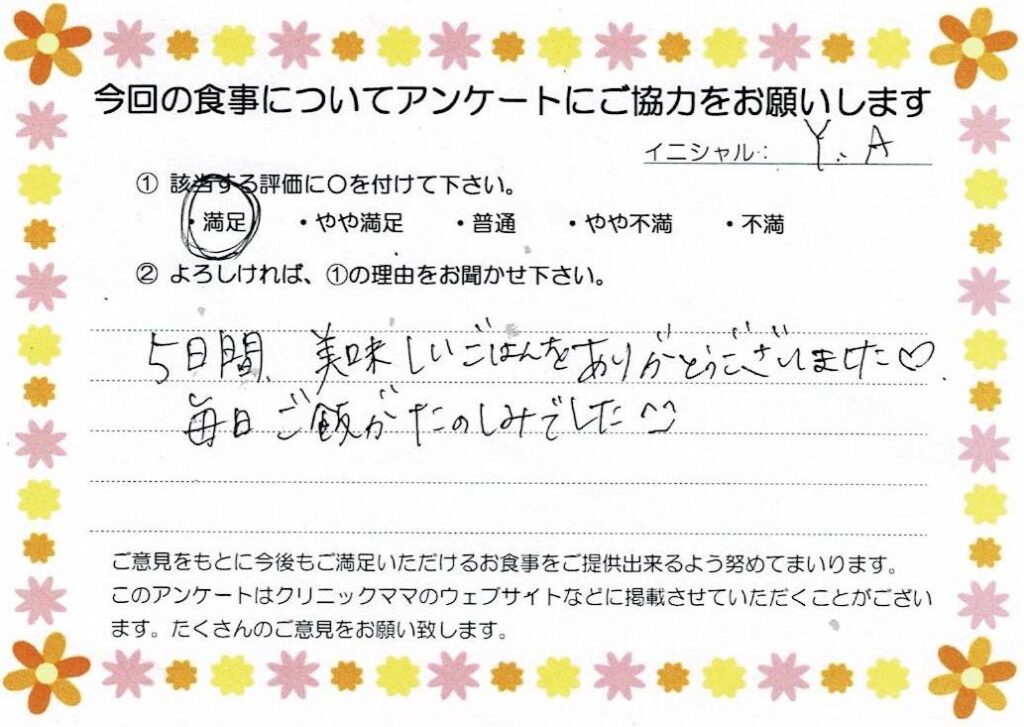 今回の食事についてアンケートにご協力をお願いします
イニシャル： Y. A
① 該当する評価に〇を付けて下さい。
・満足 ・やや満足 ・普通 ・やや不満 ・不満
② よろしければ、①の理由をお聞かせ下さい。
5日間、美味しいごはんをありがとうございました♡
毎日ご飯がたのしみでした^^
ご意見をもとに今後もご満足いただけるお食事をご提供出来るよう努めてまいります。
このアンケートはクリニックママのウェブサイトなどに掲載させていただくことがござい
ます。たくさんのご意見をお願い致します。